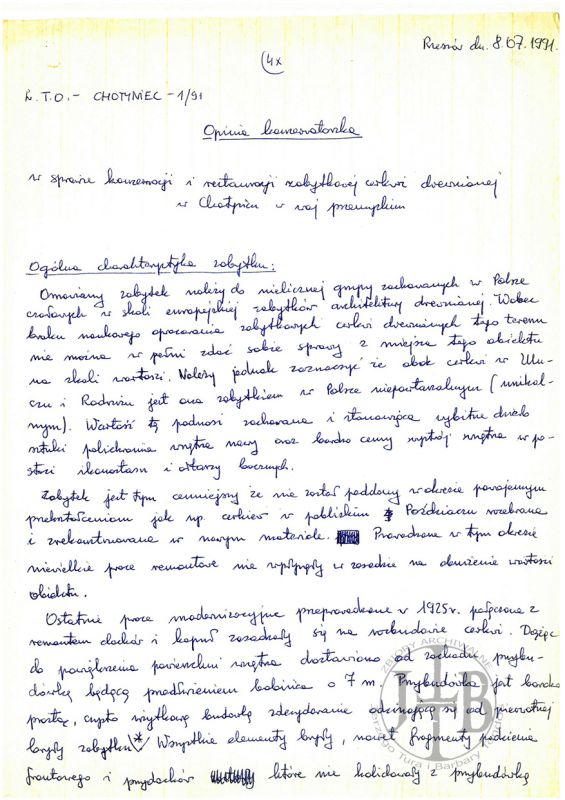 Rzeszów dn. 8.07.1991.
(4x
L.T.O. - CHOTYNIEC - 1/91
Opinia konserwatorska
w sprawie konserwacji i restauracji zabytkowej cerkwi drewnianej
w Chotyńcu w woj przemyskim
Ogólna charakterystyka zabytku:
Omawiany zabytek należy do nielicznej grupy zachowanych w Polsce
czołowych w skali europejskiej zabytków architektury drewnianej. Wobec
braku naukowego opracowania zabytkowych cerkwi drewnianych tego terenu
nie można w pełni zdać sobie sprawy z miejsca tego obiektu
na skali wartości. Należy jednak zaznaczyć że obok cerkwi w Ulu-
czu i Radrużu jest ona zabytkiem w Polsce niepowtarzalnym (unikal-
nym). Wartość tę podnosi zachowana i stanowiąca wybitne dzieło
sztuki polichromia wnętrza nawy oraz bardzo cenny wystrój wnętrza w po-
staci ikonostasu i ołtarzy bocznych.
Zabytek jest tym cenniejszy że nie został poddany w okresie powojennym
przekształceniom jak np. cerkiew w pobliskim Poździaczu rozebrana
i zrekonstruowana w nowym materiale. Prowadzone w tym okresie
niewielkie prace remontowe nie wpłynęły w zasadzie na obniżenie wartości
obiektu.
Ostatnie prace modernizacyjne przeprowadzone w 1925r. połączone z
remontem dachów i kopuł zasadzały się na rozbudowie cerkwi. Dążąc
do powiększenia powierzchni wnętrza dostawiono od zachodu przybu-
dówkę będącą przedłużeniem babińca o 7 m. Przybudówka jest bardzo
prostą, czysto użytkową budowlą zdecydowanie odcinającą się od pierwotnej
bryły zabytku.* Wszystkie elementy bryły, nawet fragmenty podcienia
frontowego i przydachów które nie kolidowały z przybudówką
ZBIORY ARCHIWALNE
Jerzego Tura i Barbary